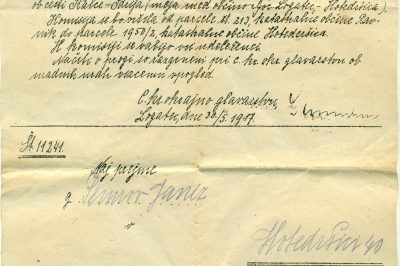 ob cesti Kalce - (meja med občino Logatec - Hotedršica).
Komisija od parcele št. 213, katastralne občine Rav-
nik do parcele 1950/2, katastralne občine Hotedršica.
H komisiji se vabijo vsi udeleženci.
Načrti o progi so razgrnjeni pri c. kr. okr. glavarstvu ob
uradnih urah vsacemu vpogled.
C. kr. okrajno glavarstvo,
Logatec, dne 30/5. 1917.
Št. 11241.
Naj prejme
g Janez
v
Hotedršici 40